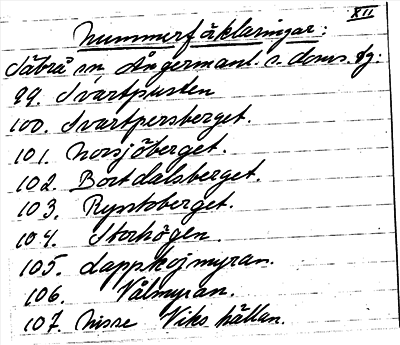 XII
Nummerförklaringar:
Säbrå sn Ångermanl. s. doms. fg:
99. Svartpusten
100. Svartpersberget.
101. Norsjöberget.
102. Bortdalsberget.
103. Ryssberget.
104. Storhögen.
105. Lappkojmyran.
106. Vålmyran.
107. Nisse Viks hällan.